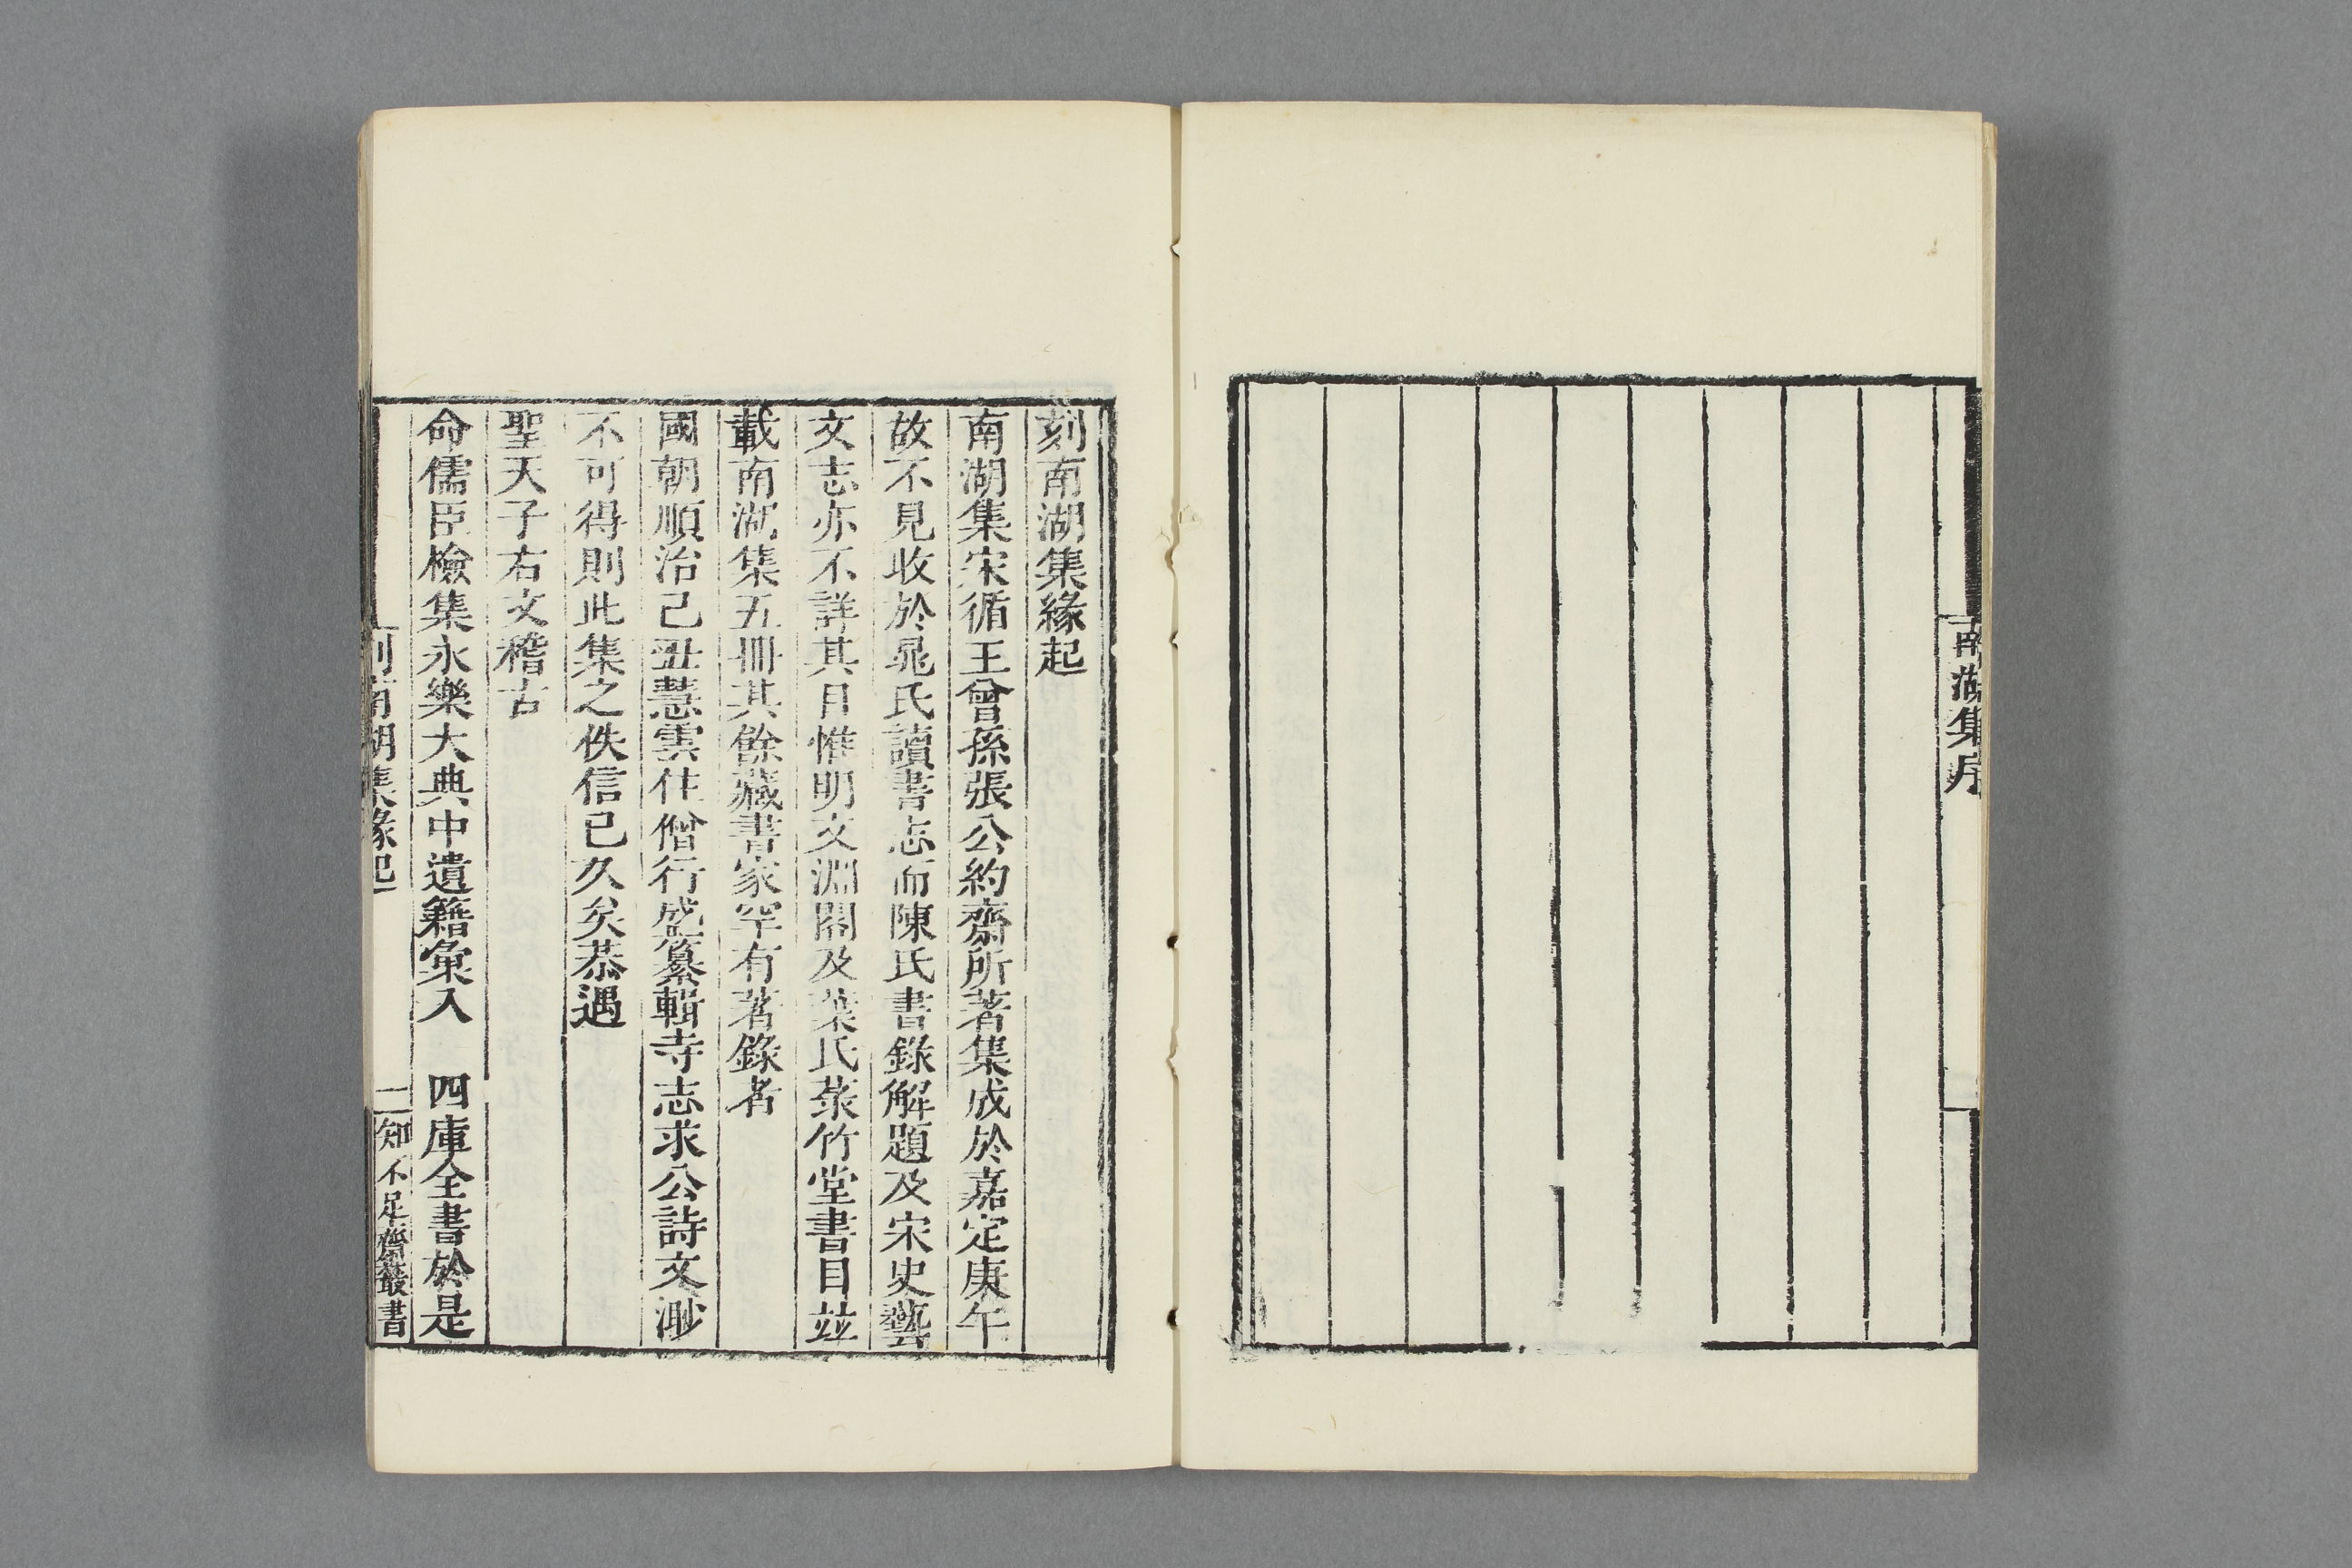 南湖集序
刻南湖集緣起
南湖集宋循王曾孫張公約齋所著集成於嘉定庚午
故不見收於晁氏讀書志而陳氏書錄解題及宋史藝
文志亦不詳其目惟明文淵閣及葉氏菉竹堂書目並
載南湖集五冊其餘藏書家罕有著錄者
國朝順治己丑慧雲住僧行盛纂輯寺志求公詩文渺
不可得則此集之佚信已久矣恭遇
聖天子右文稽古
命儒臣檢集永樂大典中遺籍彙入 四庫全書於是
刻南湖集緣起
一
知不足齋叢書